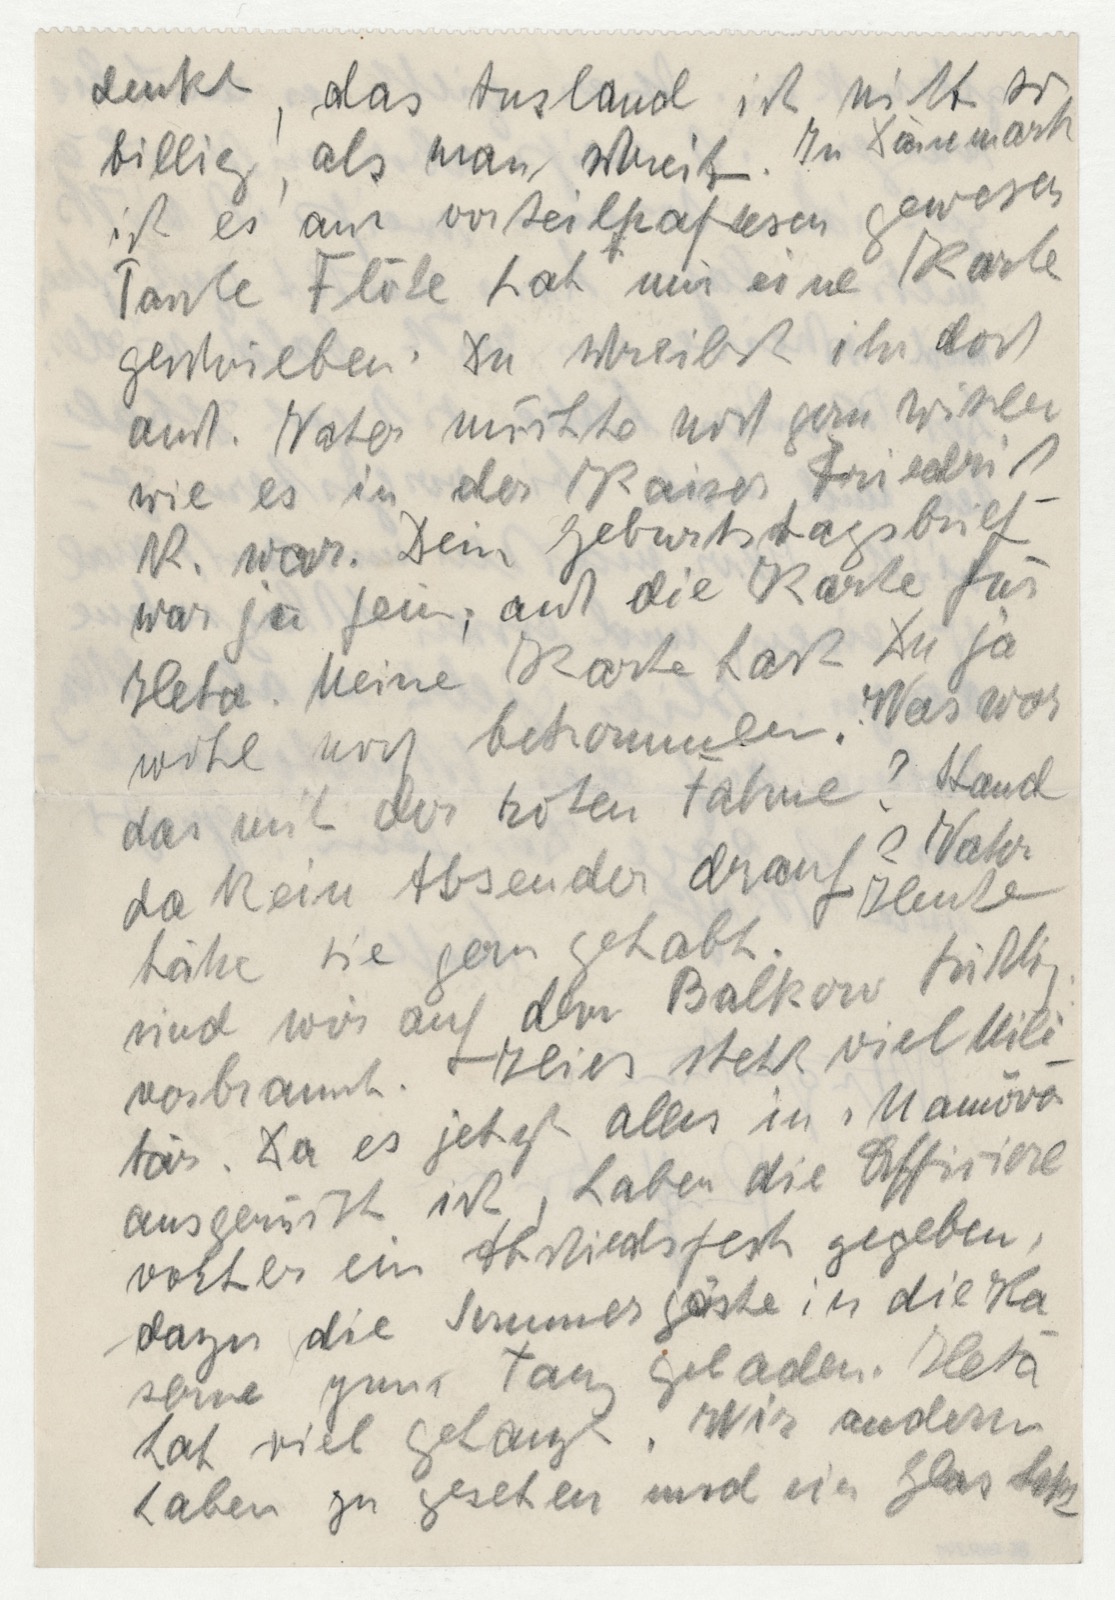 denkt, das Ausland ist nicht so
billig, als man schreit. In Dänemark
ist es am vorteilhaftesten gewesen
Tante Flöte hat mir eine Karte
geschrieben. Du schreibst ihr doch
auch. Vater möchte noch gern wissen
wie es in der Kaiser Friedrich
K. war. Dein Geburtstagsbrief
war ja fein, auch die Karte für
Heta. Meine Karte hast Du ja
wohl noch bekommen. Was war
das mit der roten Fahne? Stand
da kein Absender drauf? Vater
hätte sie gern gehabt. Heute
sind wir auf dem Balkon tüchtig
verbrannt. Hier steht viel Mili-
tär. Da es jetzt alles in's Manöver
ausgerückt ist, haben die Offiziere
vorher ein Abschiedsfest gegeben,
dazu die Sommergäste in die Ka
serne zum Tanz geladen. Heta
hat viel getanzt. Wir andern
haben zu gesehen und ein Glas